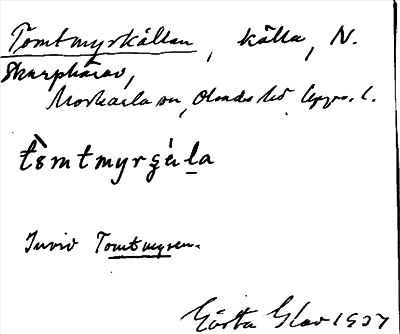 Tomtmyrkällan, källa, N.
Skarphärad,
Morkarla sn, Olands hd Upps. l.
tòmtmyrçéla
Invid Tomtmyren.
Gösta Glav 1937